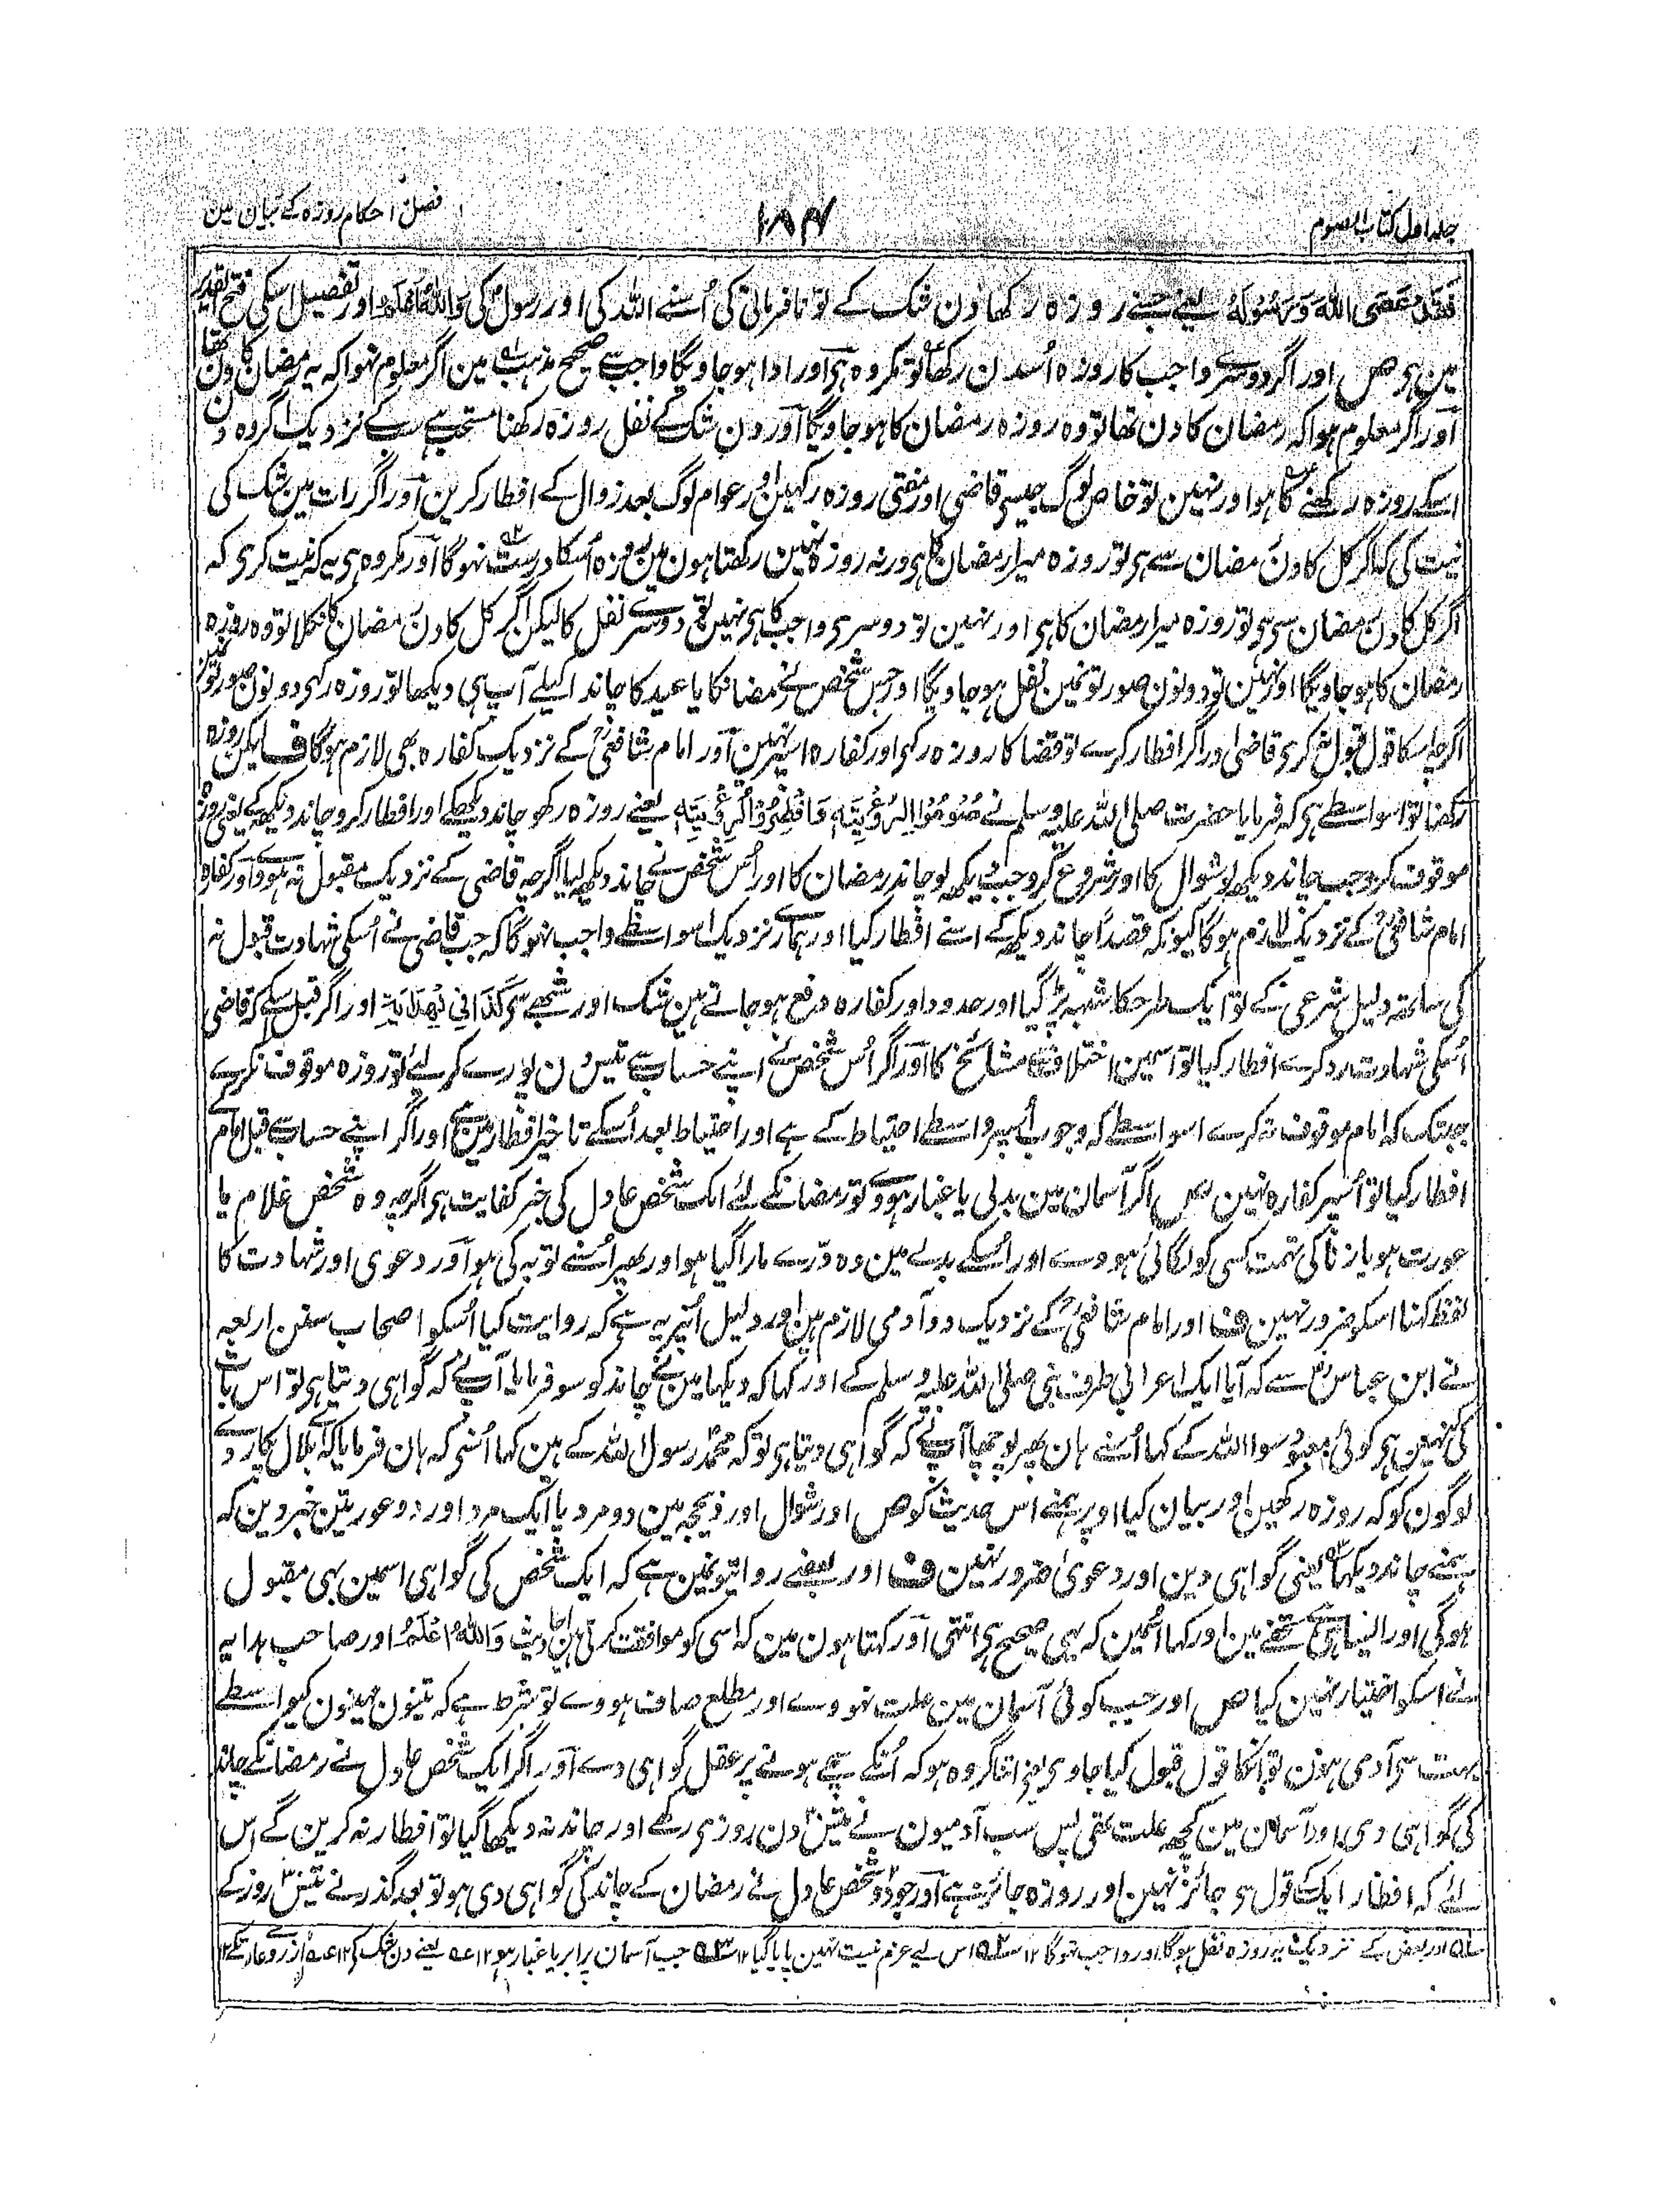 جلد اول کتاب الصوم
۱۸۴
فصل احکام روزہ کے بیان مین
فَقَدْ عَصَی اللّٰہَ وَرَسُوْلَہٗ یعنے جسنے روزہ رکھا دن شک کے تو نافرمانی کی اُسنے اللہ کی اور رسول کی وَاللّٰہُ اَعْلَمُ اور تفصیل اسکی فتح القدیر
مین ہی ص اور اگر دوسرے واجب کا روزہ اُسدن رکھا تو مکروہ ہی اور ادا ہو جاویگا واجب صحیح مذہب مین اگر معلوم نہوا کہ یہ رمضان کا دن تھا
اور اگر معلوم ہوا کہ رمضان کا دن تھا تو وہ روزہ رمضان کا ہو جاویگا اور دن شک کے نفل روزہ رکھنا مستحب ہے سب کے نزدیک اگر وہ دن
اسکے روزہ رکھنے کا ہو اور نہین تو خاص لوگ جیسے قاضی اور مفتی روزہ رکھین اور عوام لوگ بعد زوال کے افطار کرین اور اگر رات مین شک کی
نیت کی کہ اگر کل کا دن رمضان سے ہی تو روزہ میرا رمضان کا ہی ورنہ روزہ نہین رکھتا ہون مین روزہ اُسکا درست نہوگا اور مکروہ ہی یہ کہ نیت کری کہ
اگر کل کا دن رمضان سی ہی تو روزہ میرا رمضان کا ہی اور نہین تو دوسری واجب کا ہی نہین تو دوسرے نفل کا لیکن اگر کل کا دن رمضان کا نکلا تو وہ روزہ
رمضان کا ہو جاویگا اور نہین تو دونون صورتونمین نفل ہو جاویگا اور جس شخص نے رمضانکا یا عید کا چاند اکیلے آپ ہی دیکھا تو روزہ رکھی دونون صورتونمین
اگرچہ اسکا قول قبول نکری قاضی اور اگر افطار کرے تو قضا کا روزہ رکھی اور کفارہ اسپر نہین اور امام شافعی کے نزدیک کفارہ بھی لازم ہوگا ف لیکن روزہ
رکھنا تو اسواسطے ہی کہ فرمایا حضرت صلی اللہ علیہ وسلم نے صُوْمُوْا لِرُؤْیَتِہٖ وَاَفْطِرُوْا لِرُؤْیَتِہٖ یعنے روزہ رکھو چاند دیکھکے اور افطار کرو چاند دیکھکے یعنی روزہ
موقوف کرو جب چاند دیکھ لو شوال کا اور شروع کرو جب دیکھ لو چاند رمضان کا اور اُس شخص نے چاند دیکھ لیا اگرچہ قاضی کے نزدیک مقبول نہ ہووے اور کفارہ
امام شافعی کے نزدیک لازم ہوگا کیونکہ قصداً چاند دیکھ کے اسنے افطار کیا اور ہمارے نزدیک اسواسطے واجب نہوگا کہ جب قاضی نے اُسکی شہادت قبول نہ
کی ساتھ دلیل شرعی کے تو ایک طرحکا شبہہ پڑ گیا اور حدود اور کفارہ دفع ہو جاتے ہین شک اور شبہے سی کَذَا فِی الْہِدَایَۃِ اور اگر قبل اسکے کہ قاضی
اُسکی شہادت رد کرے افطار کیا تو اسمین اختلاف ہے مشائخ کا اور اگر اُس شخص نے اپنے حساب سے تیس دن پورے کر لیے تو روزہ موقوف نکرے
جبتک کہ امام موقوف نہ کرے اسواسطے کہ وجوب اُسپر واسطے احتیاط کے ہے اور احتیاط بعد اُسکے تاخیر افطار مین ہے اور اگر اپنے حساب سے قبل امام کے
افطار کیا تو اُسپر کفارہ نہین ص اگر آسمان مین بدلی یا غبار ہووے تو رمضانکے لئے ایک شخص عادل کی خبر کفایت ہی اگرچہ وہ شخص غلام یا
عورت ہو یا زنا کی تہمت کسی کو لگائی ہووے اور اُسکے بدلے مین وہ دُرّے مارا گیا ہو اور پھر اُسنے توبہ کی ہو اور دعوی اور شہادت کا
لفظ کہنا اسکو ضرور نہین ف اور امام شافعی کے نزدیک دو آدمی لازم ہین اور دلیل اُسپر یہ ہے کہ روایت کیا اُسکو اصحاب سنن اربعہ
نے ابن عباس سے کہ آیا ایک اعرابی طرف نبی صلی اللہ علیہ وسلم کے اور کہا کہ دیکھا مین نے چاند کو سو فرمایا آپ نے کہ گواہی دیتا ہی تو اس بات
کی نہین ہی کوئی معبود سوا اللہ کے کہا اُسنے ہان پھر پوچھا آپ نے کہ گواہی دیتا ہی تو کہ محمد رسول اللہ کے ہین کہا اُسنی کہ ہان فرمایا کہ اے بلال پکار دے
لوگون کو کہ روزہ رکھین اور بیان کیا اوپر ہمنے اس حدیث کو ص اور شوال اور ذیحجہ مین دو مرد یا ایک مرد اور دو عورتین خبر دین کہ
ہمنے چاند دیکھا یعنی گواہی دین اور دعویٰ ضرور نہین ف اور بعضے روایتونمین ہے کہ ایک شخص کی گواہی اسمین بھی مقبول
ہوگی اور ایسا ہی ہے تحفے مین اور کہا اُسمین کہ یہی صحیح ہی انتہی اور کہتا ہون مین کہ اسی کو موافقت کرتی ہین احادیث وَاللّٰہُ اَعْلَمُ اور صاحب ہدایہ
نے اسکو اختیار نہین کیا ص اور جب کوئی آسمان مین علت نہووے اور مطلع صاف ہووے تو شرط ہے کہ تینون مہینون کیواسطے
بہت سی آدمی ہون تو اُنکا قول قبول کیا جاوی یعنی اتنا گروہ ہو کہ اُنکے سچے ہونے پر عقل گواہی دے اور اگر ایک شخص عادل نے رمضانکے چاند
کی گواہی دی اور آسمان مین کچھ علت تھی پس سب آدمیون نے تیس دن روزی رکھے اور چاند نہ دیکھا گیا تو افطار نہ کرین گے اس
لئے کہ افطار ایک کے قول سی جائز نہین اور روزہ جائز ہے اور جو دو شخص عادل نے رمضان کے چاند کی گواہی دی ہو تو بعد گذرنے تیس روز کے
اور بعض کے نزدیک یہ روزہ نفل ہوگا اور واجب نہوگا ۱۲ اس لیے عزم نیت نہین پایا گیا ۱۲ جب آسمان پر ابر یا غبار ہو ۱۲ یعنے دن شک کے ۱۲ از روے عادت کے ۱۲